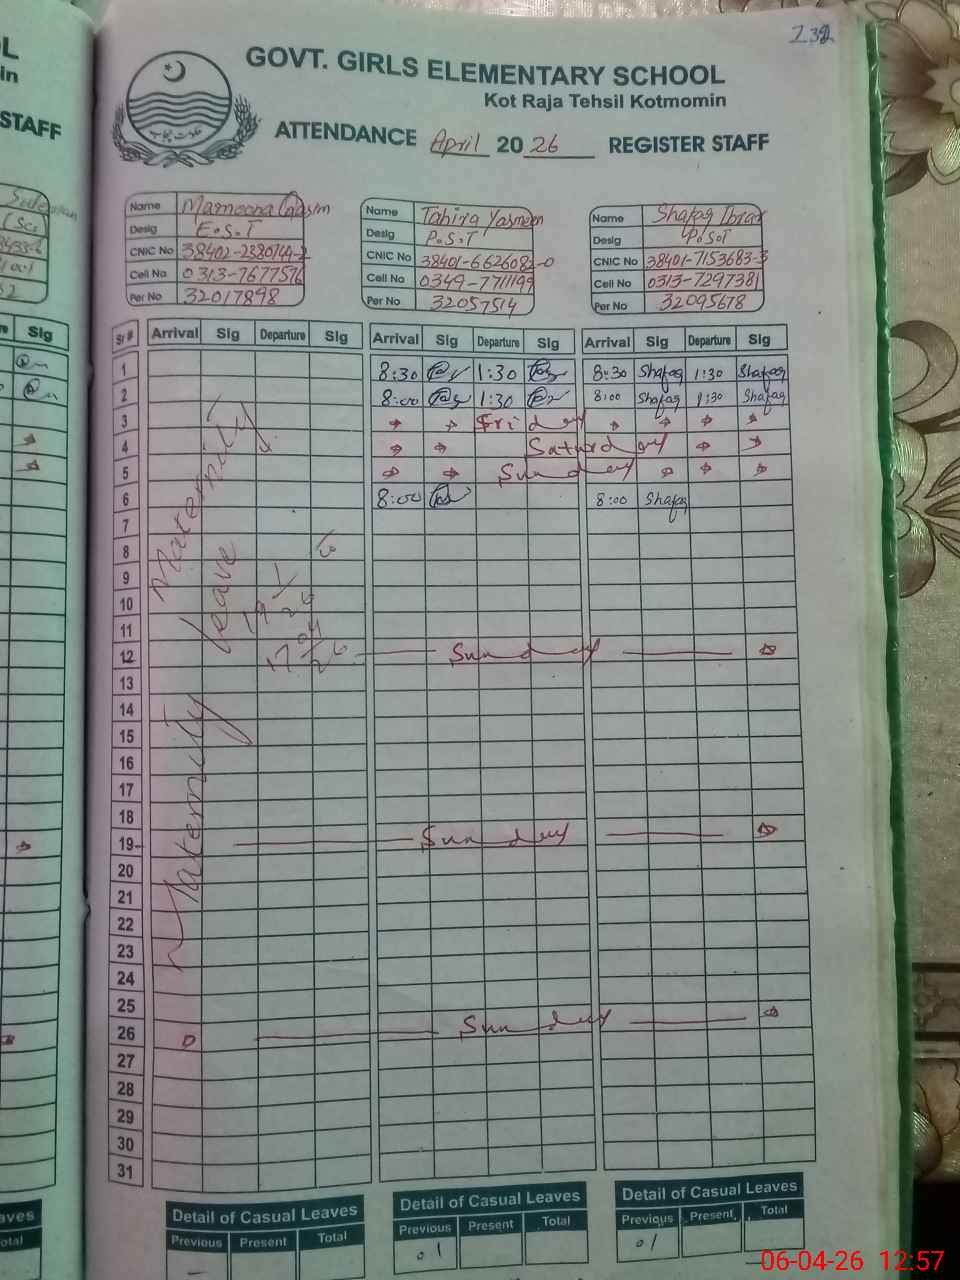 232
GOVT. GIRLS ELEMENTARY SCHOOL
Kot Raja Tehsil Kotmomin
ATTENDANCE April 2026 REGISTER STAFF
حکومت پنجاب
STAFF
Name Mamoona Qasim
Desig E.S.T
CNIC No 38402-2380144-2
Cell No 0313-7677576
Per No 32017898
Name Tahira Yasmeen
Desig P.S.T
CNIC No 38401-6626082-0
Cell No 0349-7711199
Per No 32057514
Name Shafaq
Desig P.S.T
CNIC No 38401-7153683-3
Cell No 0313-7297381
Per No 32095678
Sig
Sr # Arrival Sig Departure Sig Arrival Sig Departure Sig Arrival Sig Departure Sig
1 8:30 1:30 8:30 Shafaq 1:30 Shafaq
2 8:00 1:30 8:00 Shafaq 1:30 Shafaq
3 Friday
4 Saturday
5 Sunday
6 8:00 8:00 Shafaq
7
8
9
10
11
12 Sunday
13
14
15
16
17
18
19 Sunday
20
21
22
23
24
25
26 Sunday
27
28
29
30
31
Maternity
Leave
19/1/26 to
17/04/26
Maternity
Detail of Casual Leaves
Previous Present Total
-
Detail of Casual Leaves
Previous Present Total
01
Detail of Casual Leaves
Previous Present Total
01
06-04-26 12:57